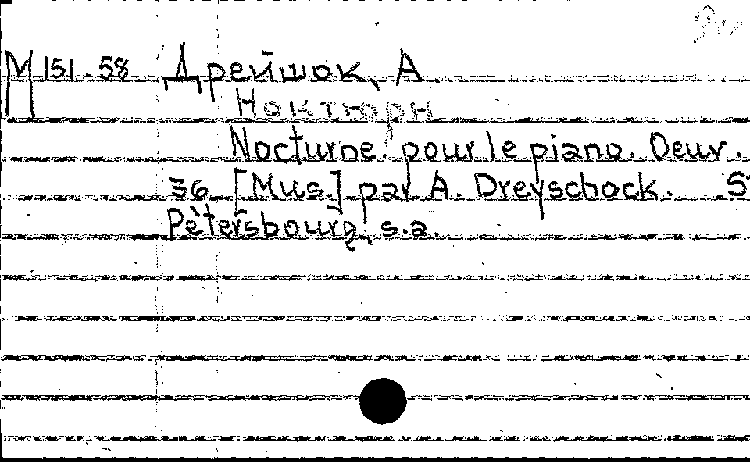 М 151.58 Дрейшок, А.
Ноктюрн
Nocturne pour le piano. Oeuv.
36 [Mus.] par A. Dreyschock. S
Pètersbourg, s.a.